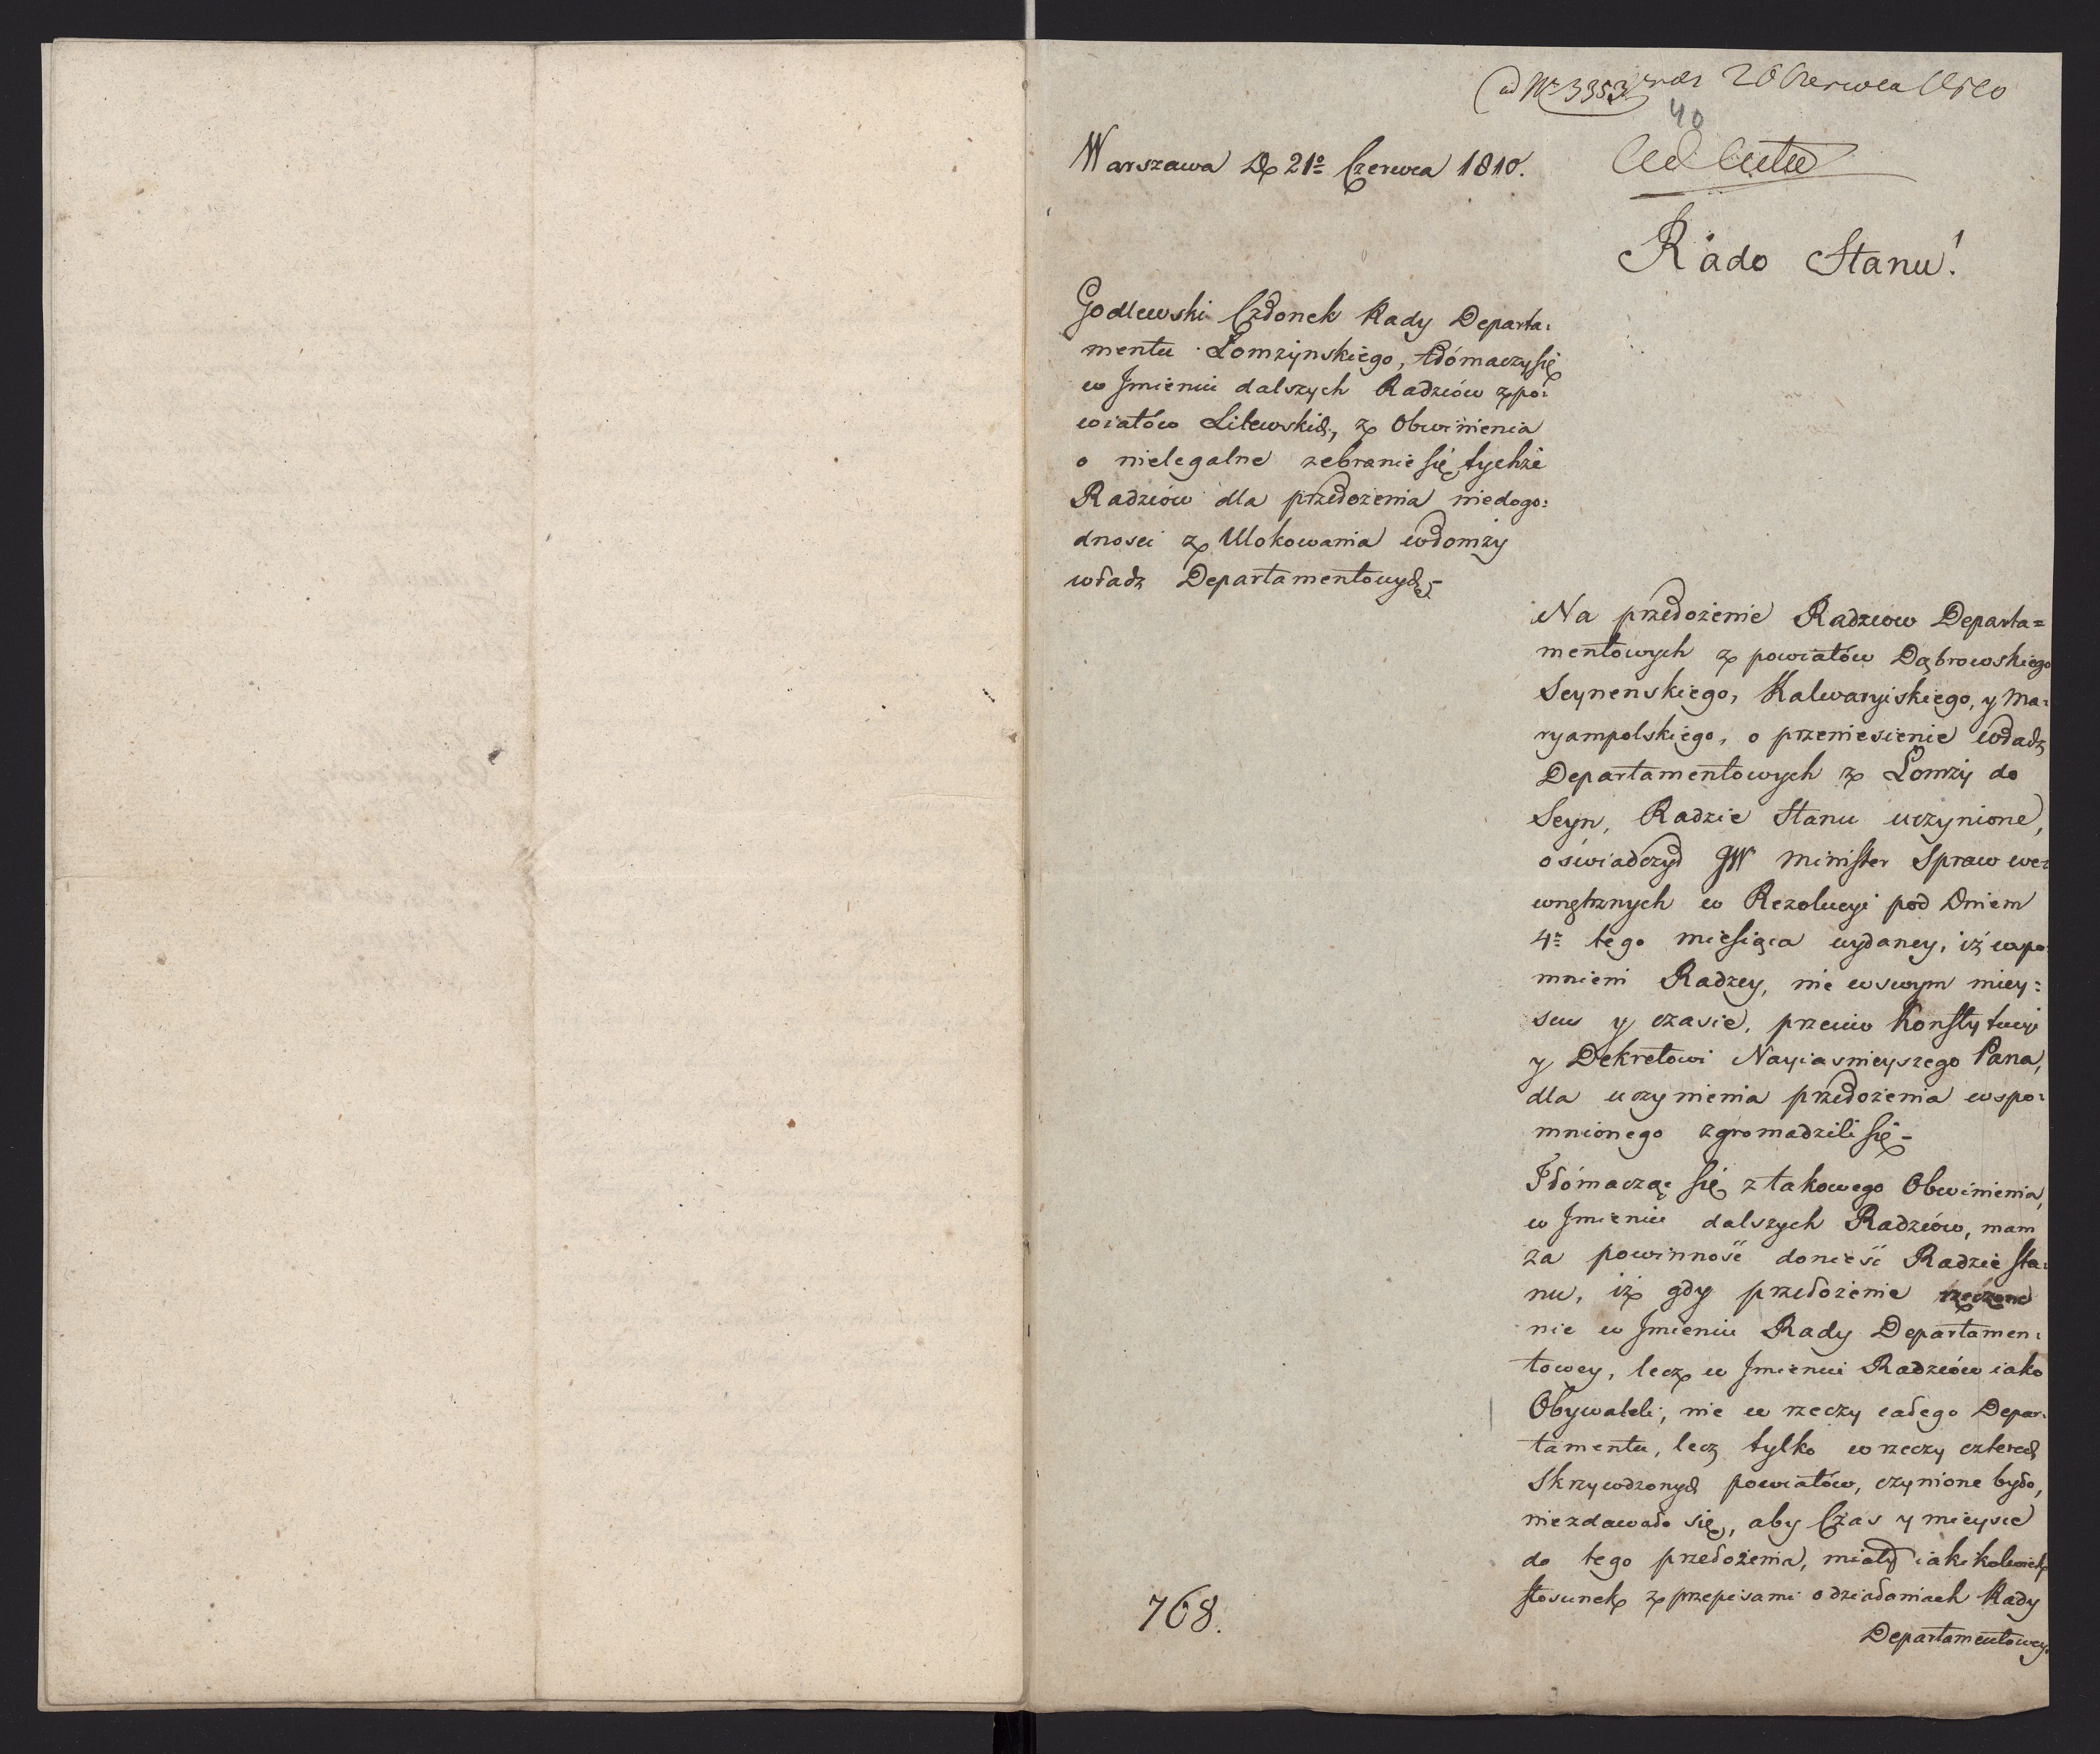 ad Nr 3353 26 Czerwca 1810
40
Ad Acta
Warszawa D. 21º Czerwca 1810.
Rado Stanu!
Godlewski Członek Rady Departa:
mentu Łomzynskiego, tłómaczy się
w Jmieniu dalszych Radzców z po:
wiatów Litewskich, z Obwinienia
o nielegalne zebranie się tychże
Radzców dla przełożenia niedogo:
dnosci z Ulokowania w Łomży
władz Departamentowych,-
Na przełożenie Radzców Departa=
mentowych z powiatów Dąbrowskiego
Seynenskiego, Kalwaryiskiego, y Ma:
ryampolskiego, o przeniesienie władz
Departamentowych z Łomży do
Seyn, Radzie Stanu uczynione,
oświadczył JW Minister Spraw we:
wnętrznych w Rezolucyi pod Dniem
4º tego miesiąca wydaney, iż wspo:
mnieni Radzcy, nie w swym miey:
scu y czasie, przeciw Konstytucyi
y Dekretowi Nayiasnieyszego Pana,
dla uczynienia przełożenia wspo:
mnionego zgromadzili się-
Tłómacząc się z takowego Obwinienia,
w Jmieniu dalszych Radzców, mam
za powinność donieść Radzie Sta:
nu, iż gdy przełożenie rzeczone
nie w Jmieniu Rady Departamen:
towey, lecz w Jmieniu Radzców iako
Obywateli, nie w rzeczy całego Depar:
tamentu, lecz tylko w rzeczy czterech
Skrzywdzonych powiatów, czynione było,
niezdawało się, aby Czas y mieysce
do tego przełożenia, miały iakikolwiek
stosunek z przepisami o działaniach Rady
Departamentowey.
768.